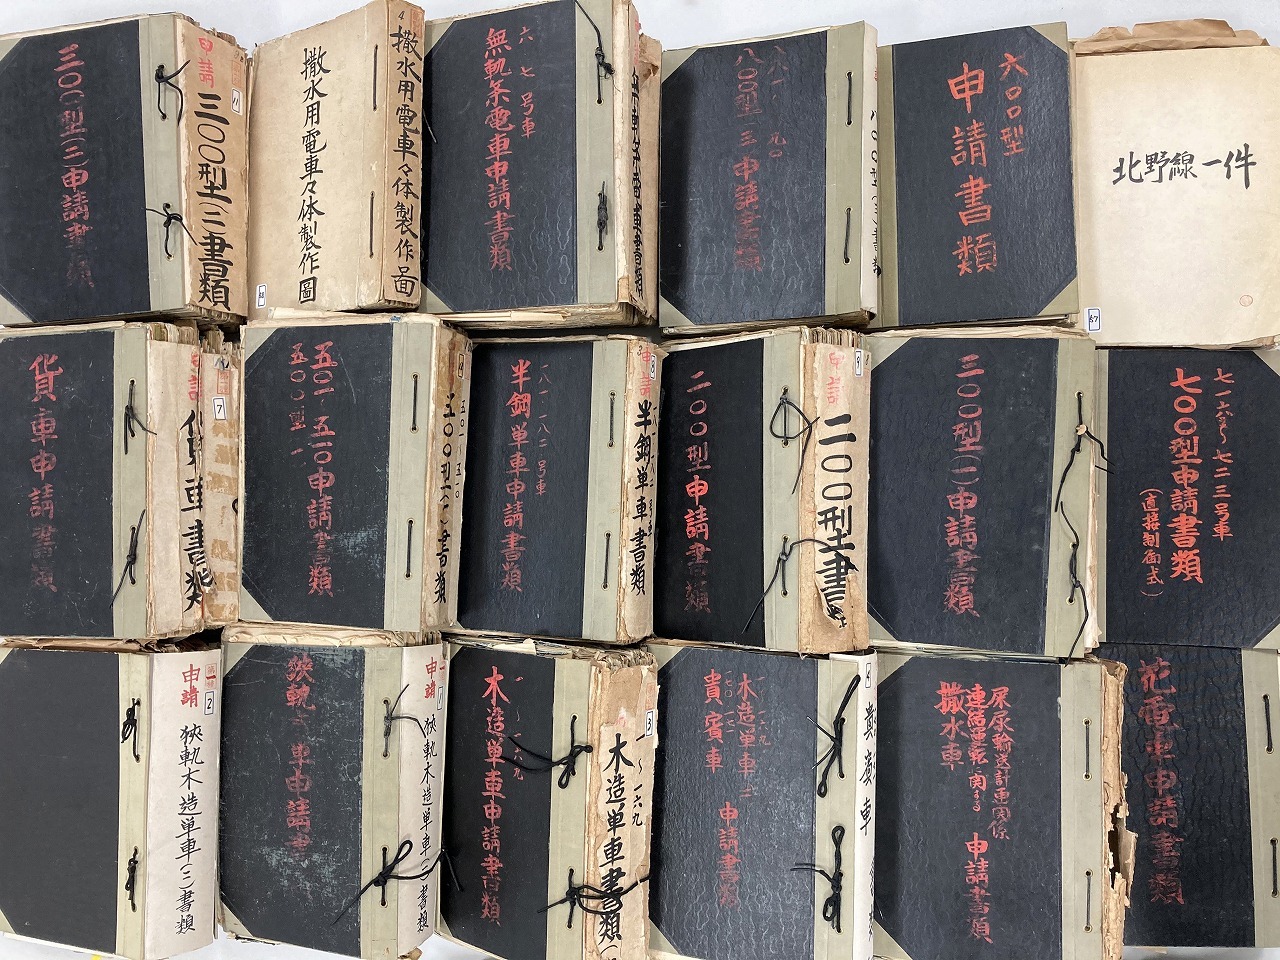 三〇〇型(二)申請書類
申請
三〇〇型(二)書類
11
撒水用電車々体製作圖
4
撒水用電車々体製作圖
88
六七号車
無軌条電車申請書類
八〇〇型(三)申請書類
六〇〇型
申請書類
北野線一件
87
貨車申請書類
貨車書類
7
五〇一 五一〇申請書類
五〇〇型一
五〇一 五一〇
五〇〇型(一)書類
一八一 一八二号車
半鋼単車申請書類
申請
8
半鋼単車書類
二〇〇型申請書類
申請
9
二〇〇型書
三〇〇型(一)申請書類
七一六から七二三号車
七〇〇型申請書類
(直接制御式)
申請
2
狹軌木造単車(二)書類
狹軌木造単車申請書
申請
1
狹軌木造単車(一)書類
一〜一六九
木造単車申請書類
3
一〜一六九
木造単車書類
一〜一六九
木造単車二
貴賓車
申請書類
4
貴賓車
屎尿輸送計画関係
連絡運転ニ関する
撒水車
申請書類
花電車申請書類